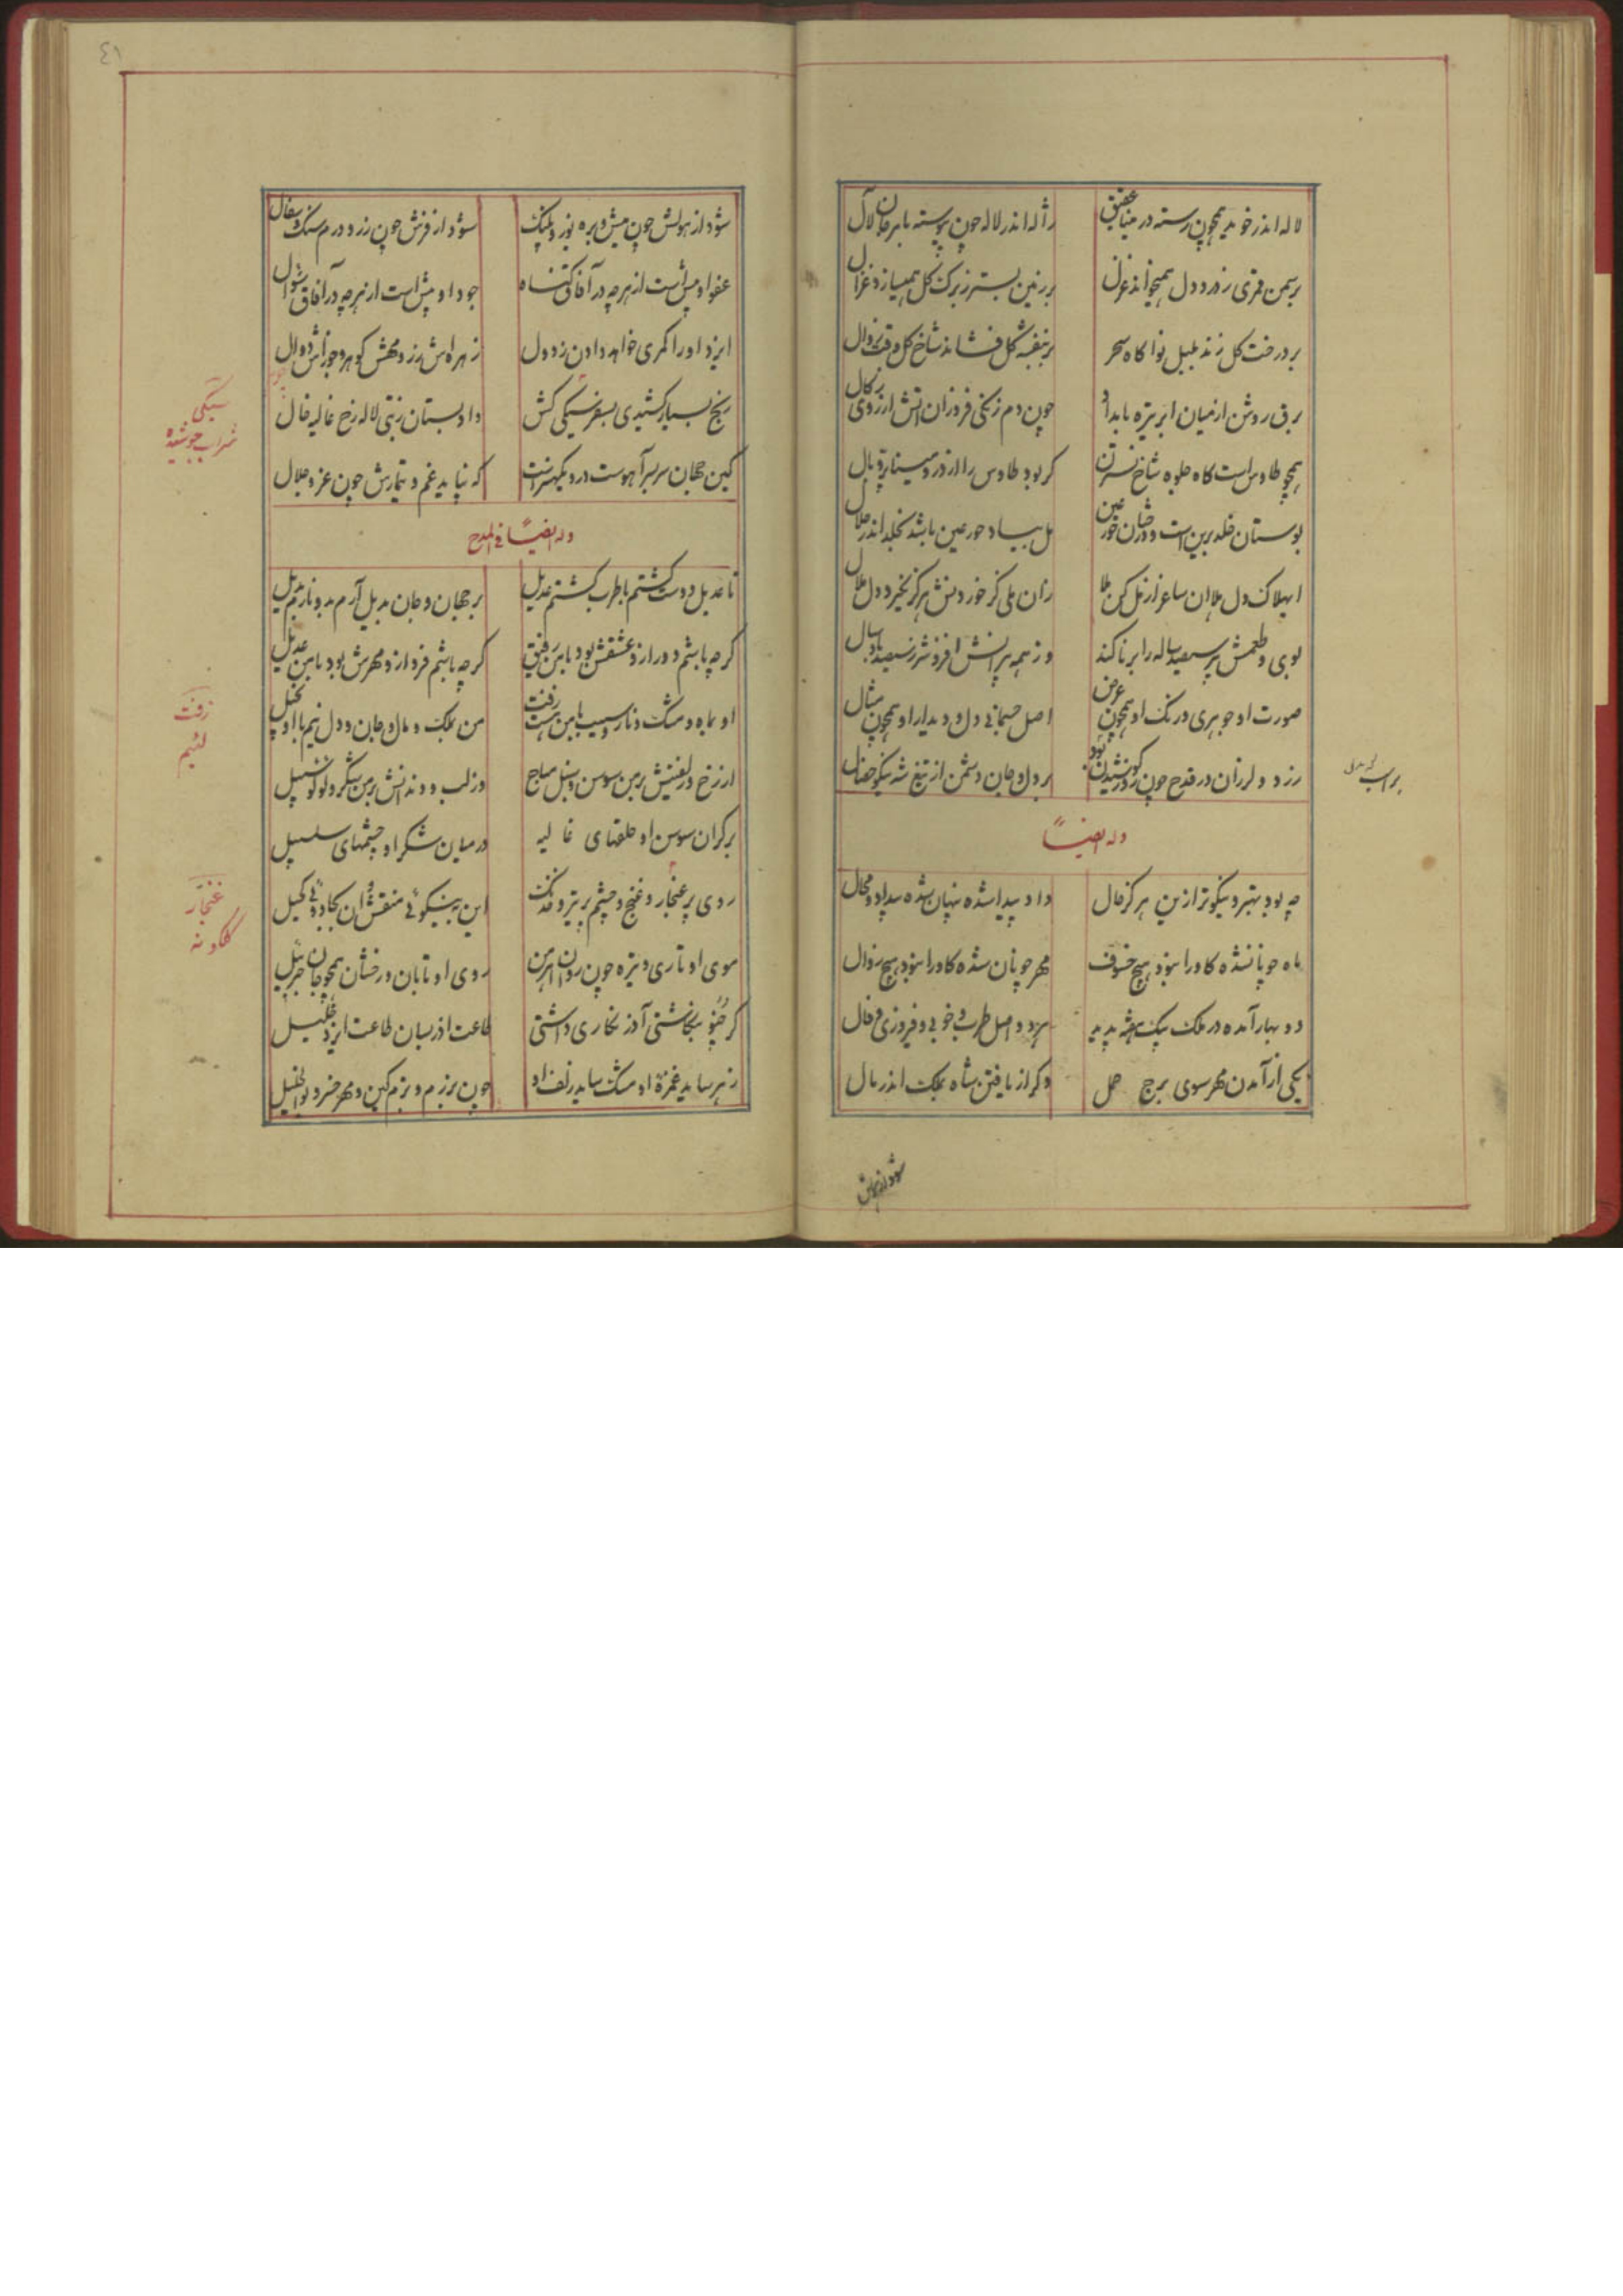 لاله اندر خوید همچون رسته در مینا عقیق
ژاله اندر لاله چون پیوسته با مرجان لآل
بر سمن قمری ز درد دل همیخواند غزل
بر زمین بستر ز برک کل همیسازد غزال
بر درخت کل زند بلبل نوا کاه سحر
بر بنفشه کل فشاند شاخ کل وقت زوال
برق روشن از میان ابر تیره بامداد
چون دم زنکی فروزان آتش از روی زکال
همچو طاوس است کاه جلوه شاخ نسترن
کر بود طاوس را از در و مینا پر و بال
بوستان خلد برین است و درختان حور عین
مل بیاد حور عین باشد بخلد اندر حلال
ای هلاک دل ملا ان ساغر از مل کن ملا
زان ملی کز خوردنش هرکز نکیرد دل ملال
بوی و طعمش پیر سیصد ساله را برنا کند
وز همه پیرانش افزونتر ز سیصد باد سال
صورت او جوهری در رنک او همچون عرض
اصل جسمانی دل و دیدار او همچون مثال
زرد و لرزان در قدح چون روز کوشیدن بود
بر دل و جان دشمن از تیغ شه نیکو خصال
وله ایضاً
چه بود بهتر و نیکوتر ازین هرکز فال
داد پیدا شده پنهان شده بیداد و محال
ماه جو یانشده کاورا نبود هیچ خسوف
مهر جویان شده کاورا نبود هیچ زوال
دو بهار آمده در ملک بیک هفته پدید
هر دو اصل طرب و خوبی و فیروزی و فال
یکی از آمدن مهر سوی برج حمل
دکر از یافتن شاه بملک اندر مال
شود از هولش
٤١
شود از هولش چون میش و بره یوز و پلنک
شود از فرش چون زر و درم سنک و سفال
عفو او بیش است از هرچه در آفاق کناه
جود او بیش است از هرچه در آفاق سؤال
ایزد او را کمری خواهد دادن زد و دل
زهره اش زر و مهش کوهر و جوزاش دوال
رنج بسیار کشیدی بسفر سیکی کش
داد بستان ز بتی لاله رخ غالیه خال
کین جهان سربسر آهوست درو یکهنر است
که نپاید غم و تیمارش چون عز و جلال
وله ایضاً فی المدح
تا عدیل دوست کشتم با طرب کشتم عدیل
بر جهان و جان بدیل آرم بدو نارم بدیل
کرچه باشم دور ازو عشقش بود با من رفیق
کرچه باشم فرد ازو مهرش بود با من عدیل
او بماه و مشک و نار و سیب با من هست زفت
من بملک و مال و جان و دل نیم با او بخیل
از رخ و زلفینش بر من سوسن و سنبل مباح
وز لب و دندانش بر من شکر و لولو سبیل
بر کران سوسن او حلقهای غالیه
در میان شکر او چشمهای سلسبیل
روی پر غنجار و غنج و چشم پر نیرنک
این به نیکوئی منقش وان بجادوئی کحیل
موی او تاری و تیره چون روان اهرمن
روی او تابان و رخشان همچو جان جبرئیل
کر چنو بنکاشتی آذر نکاری داشتی
طاعت آذر بسان طاعت ایزد خلیل
زهر ساید غمزهٔ او مشک ساید زلف او
چون برزم و بزم کین و مهر خسرو بوالخلیل
سیکی
شراب جوشیده
زفت
لئیم
غنجار
کلکونه